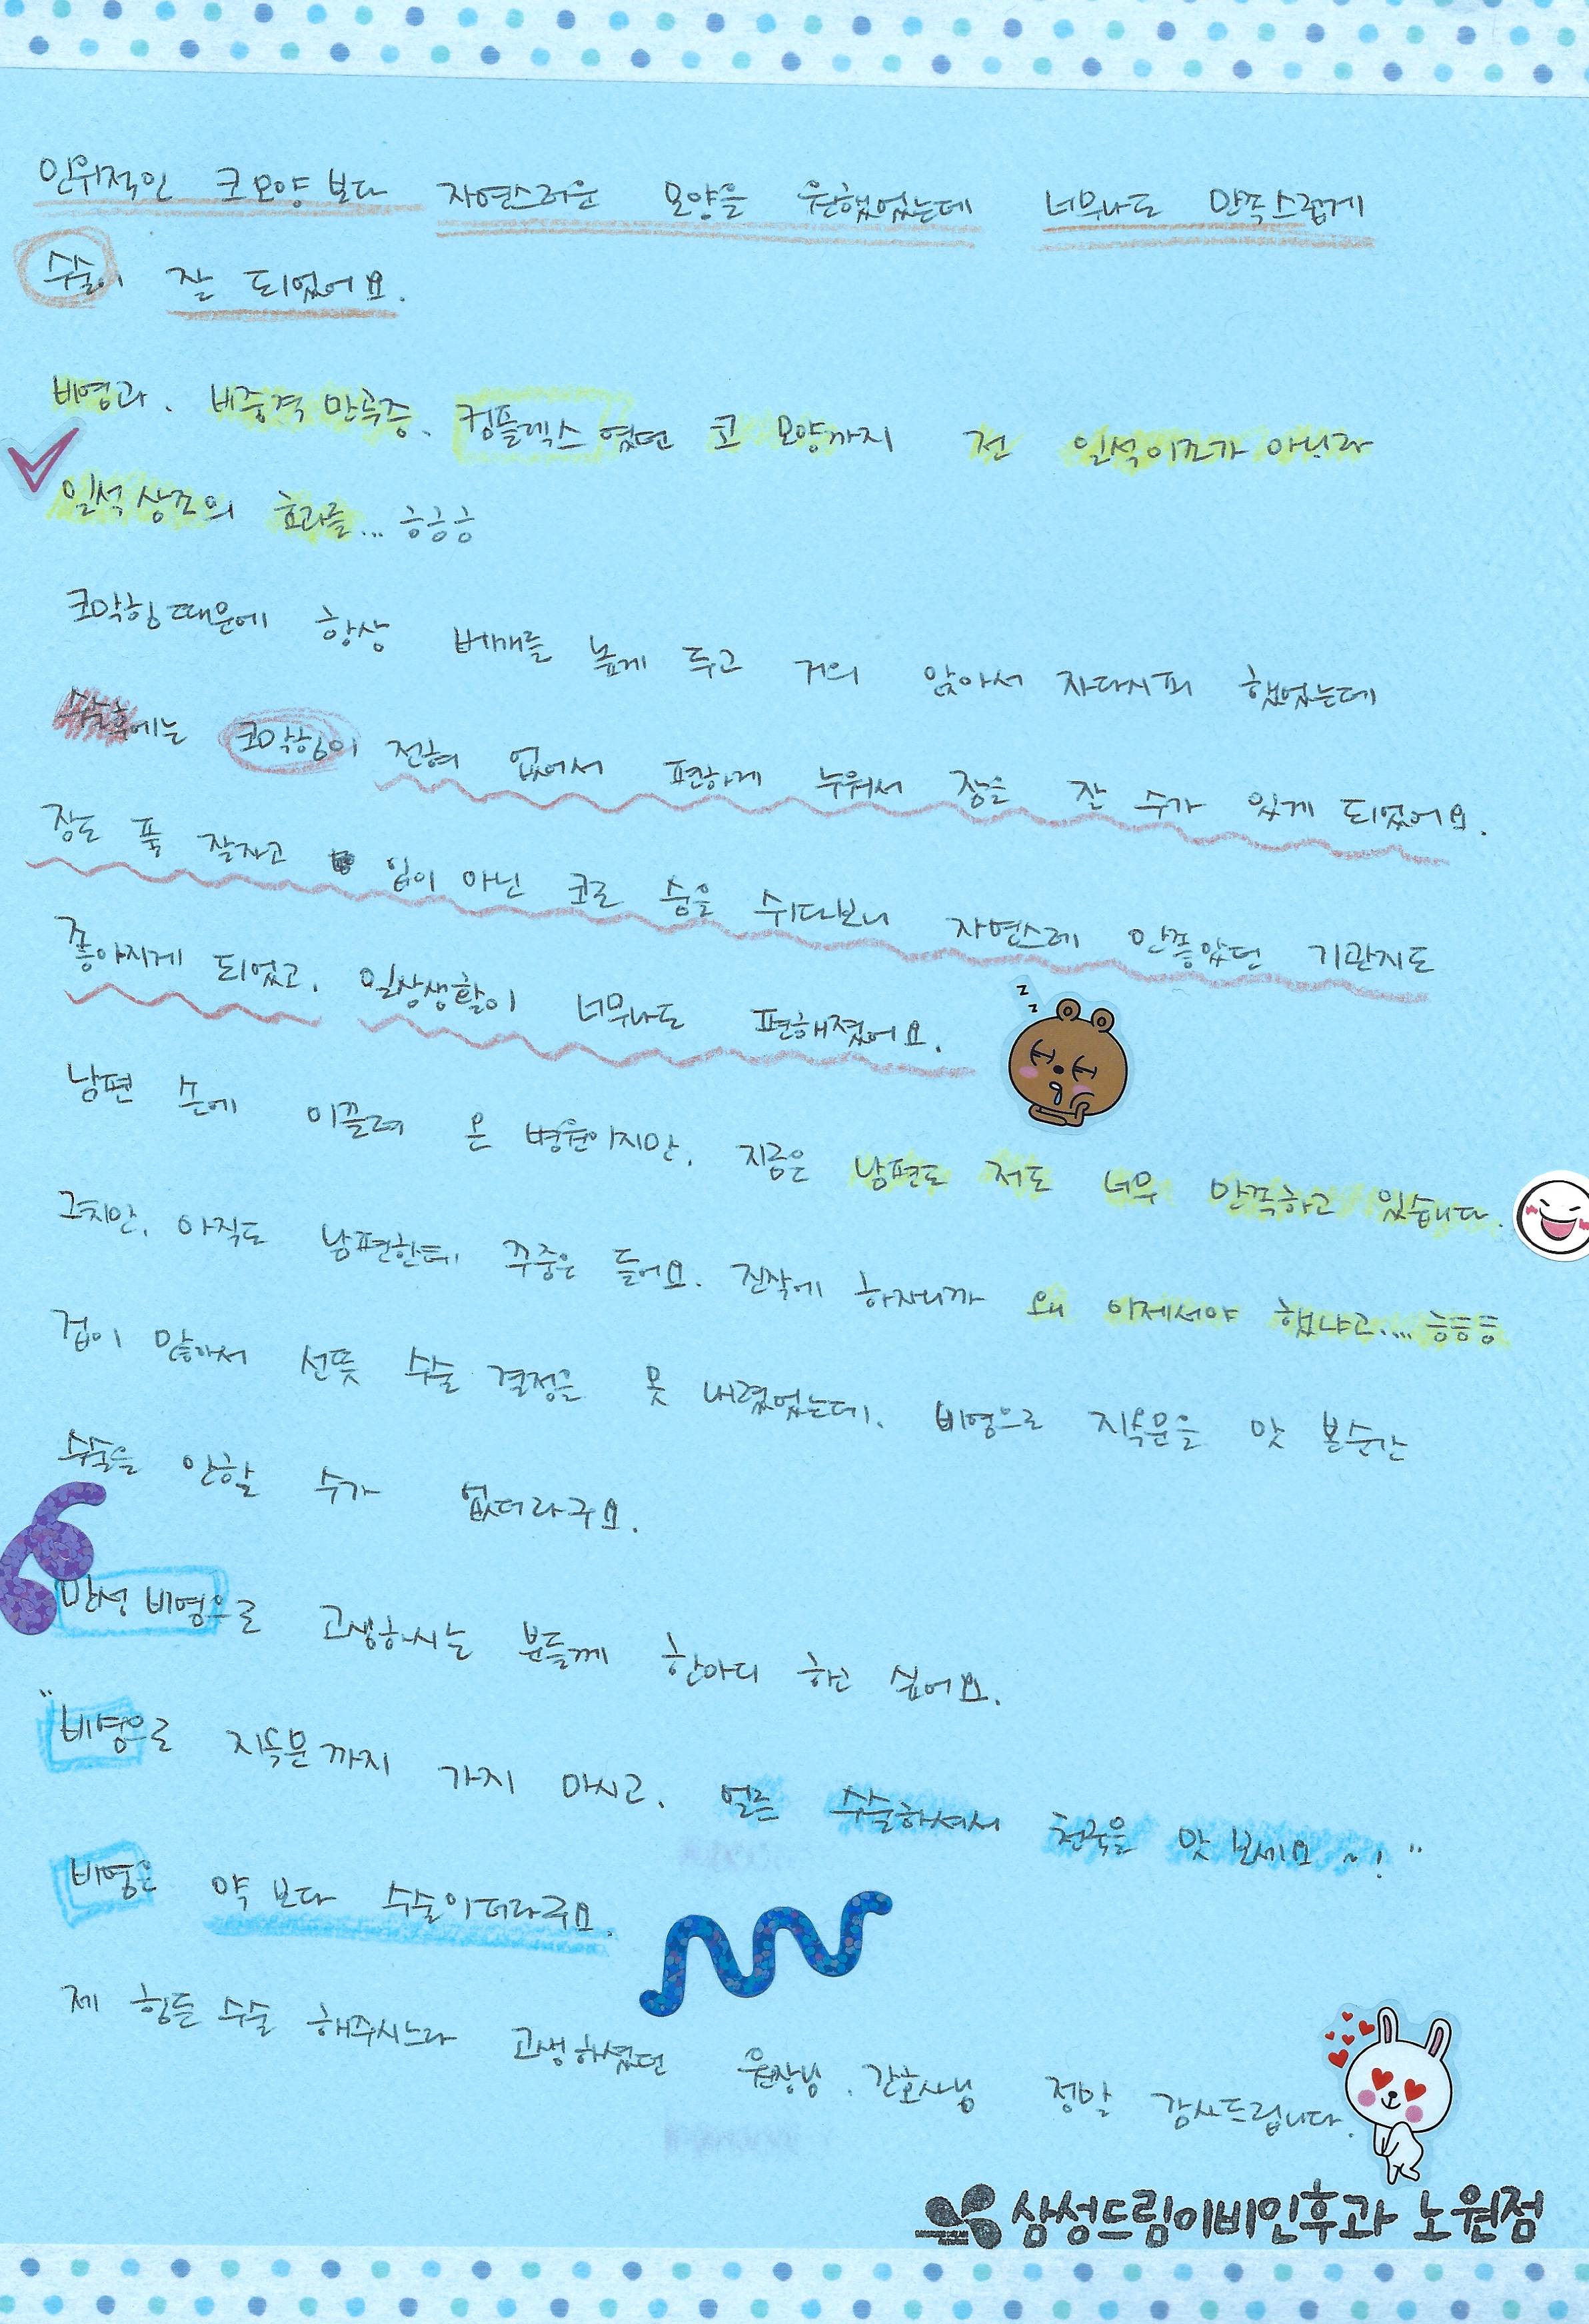 인위적인 코모양 보다 자연스러운 모양을 원했었는데 너무나도 만족스럽게
수술이 잘 되었어요.
비염과, 비중격 만곡증, 컴플렉스 였던 코 모양까지 전 일석이조가 아니라
일석삼조의 효과를... ㅎㅎㅎ
코막힘때문에 항상 베개를 높게 두고 거의 앉아서 자다시피 했었는데
수술후에는 코막힘이 전혀 없어서 편하게 누워서 잠을 잘 수가 있게 되었어요.
잠도 푹 잘자고 입이 아닌 코로 숨을 쉬다보니 자연스레 안좋았던 기관지도
좋아지게 되었고, 일상생활이 너무나도 편해졌어요.
남편 손에 이끌려 온 병원이지만, 지금은 남편도 저도 너무 만족하고 있습니다.
그치만, 아직도 남편한테 꾸중은 들어요. 진작에 하자니까 왜 이제서야 했냐고.... ㅎㅎㅎ
겁이 많아서 선뜻 수술 결정을 못 내렸었는데, 비염으로 지옥문을 맛 본순간
수술을 안할 수가 없더라구요.
만성 비염으로 고생하시는 분들께 한마디 하고 싶어요.
"비염으로 지옥문까지 가지 마시고, 얼른 수술하셔서 천국을 맛 보세요~!"
비염은 약 보다 수술이더라구요.
제 힘든 수술 해주시느라 고생하셨던 원장님, 간호사님 정말 감사드립니다.
삼성드림이비인후과 노원점